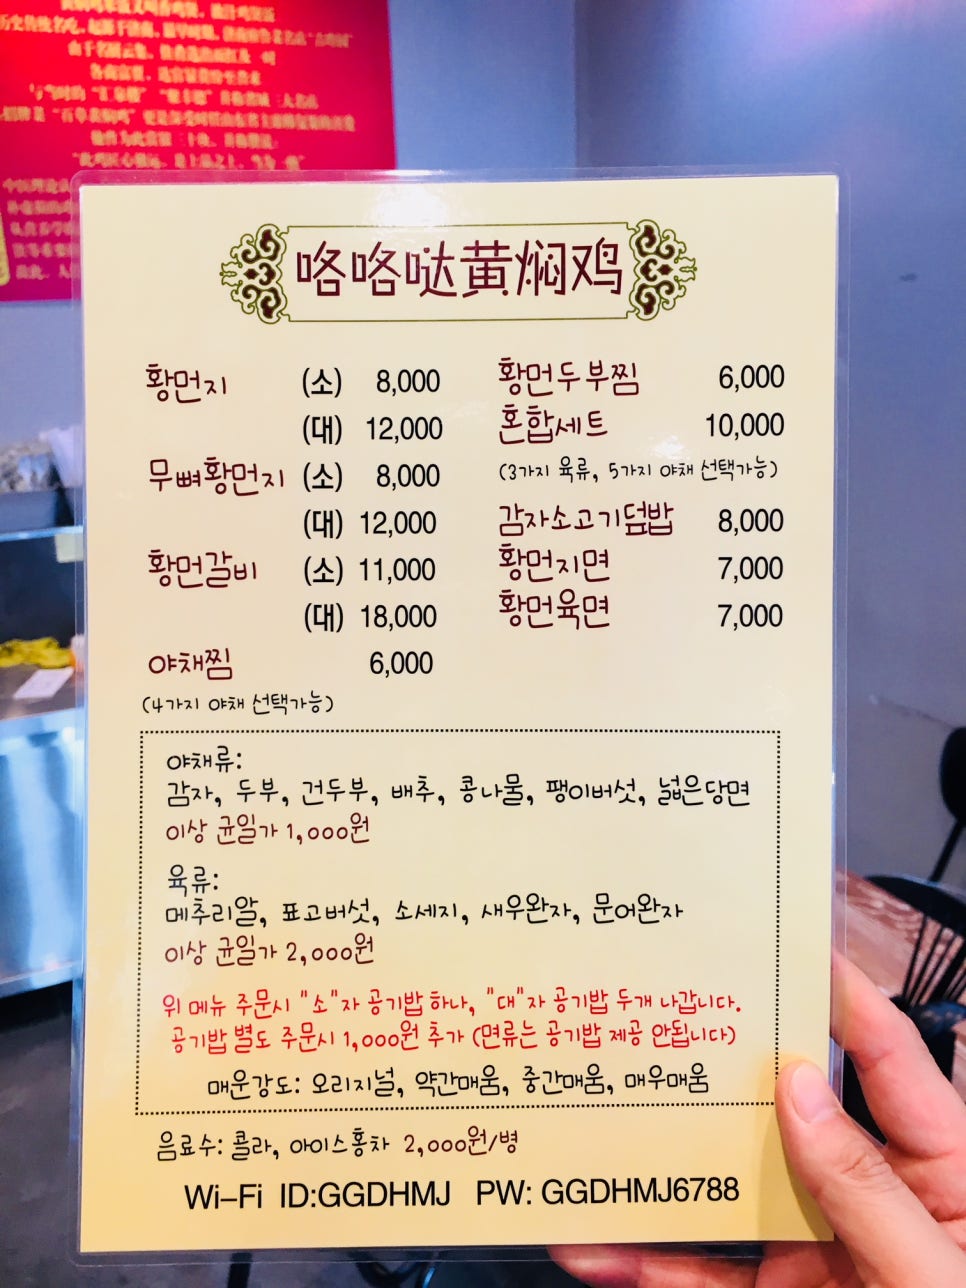 咯咯哒黄焖鸡
황먼지 (소) 8,000
(대) 12,000
무뼈황먼지 (소) 8,000
(대) 12,000
황먼갈비 (소) 11,000
(대) 18,000
야채찜 6,000
(4가지 야채 선택가능)
황먼두부찜 6,000
혼합세트 10,000
(3가지 육류, 5가지 야채 선택가능)
감자소고기덮밥 8,000
황먼지면 7,000
황먼육면 7,000
야채류:
감자, 두부, 건두부, 배추, 콩나물, 팽이버섯, 넓은당면
이상 균일가 1,000원
육류:
메추리알, 표고버섯, 소세지, 새우완자, 문어완자
이상 균일가 2,000원
위 메뉴 주문시 "소"자 공기밥 하나, "대"자 공기밥 두개 나갑니다.
공기밥 별도 주문시 1,000원 추가 (면류는 공기밥 제공 안됩니다)
매운강도: 오리지널, 약간매움, 중간매움, 매우매움
음료수: 콜라, 아이스홍차 2,000원/병
Wi-Fi ID:GGDHMJ PW: GGDHMJ6788